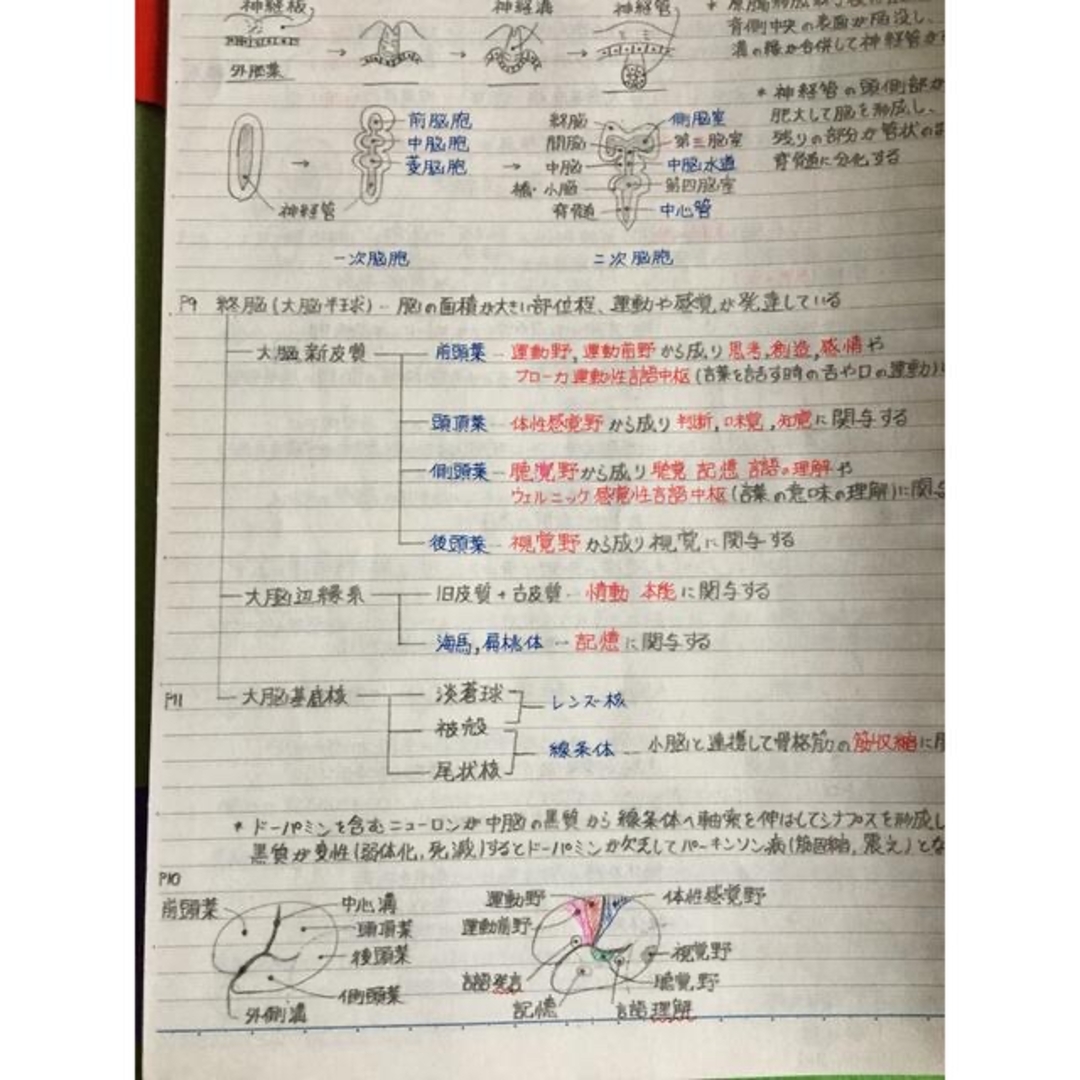 神経板
神経溝
神経管
外胚葉
背側中央の表面が陥没し、
溝の縁が合併して神経管が
* 神経管の頭側部が
肥大して脳を形成し、
残りの部分が管状の
脊髄に分化する
前脳胞
中脳胞
菱脳胞
神経管
一次脳胞
終脳
間脳
中脳
橋・小脳
脊髄
側脳室
第三脳室
中脳水道
第四脳室
中心管
二次脳胞
P9 終脳(大脳半球) - 脳の面積が大きい部位程、運動や感覚が発達している
大脳新皮質
前頭葉 - 運動野, 運動前野から成り思考, 創造, 感情や
ブローカ運動性言語中枢(言葉を話す時の舌や口の運動)
頭頂葉 - 体性感覚野から成り判断, 味覚, 知覚に関与する
側頭葉 - 聴覚野から成り聴覚 記憶 言語の理解や
ウェルニッケ感覚性言語中枢(言葉の意味の理解)に関
後頭葉 - 視覚野から成り視覚に関与する
大脳辺縁系
旧皮質+古皮質 - 情動 本能に関与する
海馬, 扁桃体 - 記憶に関与する
P11 大脳基底核
淡蒼球
被殻
尾状核
レンズ核
線条体 - 小脳と連携して骨格筋の筋収縮に
* ドーパミンを含むニューロンが中脳の黒質から線条体へ軸索を伸ばしてシナプスを形成し
黒質が変性(弱体化, 死滅)するとドーパミンが欠乏してパーキンソン病(筋固縮, 震え)とな
P10
前頭葉
中心溝
頭頂葉
後頭葉
側頭葉
外側溝
運動野
運動前野
言語発言
記憶
体性感覚野
視覚野
聴覚野
言語理解